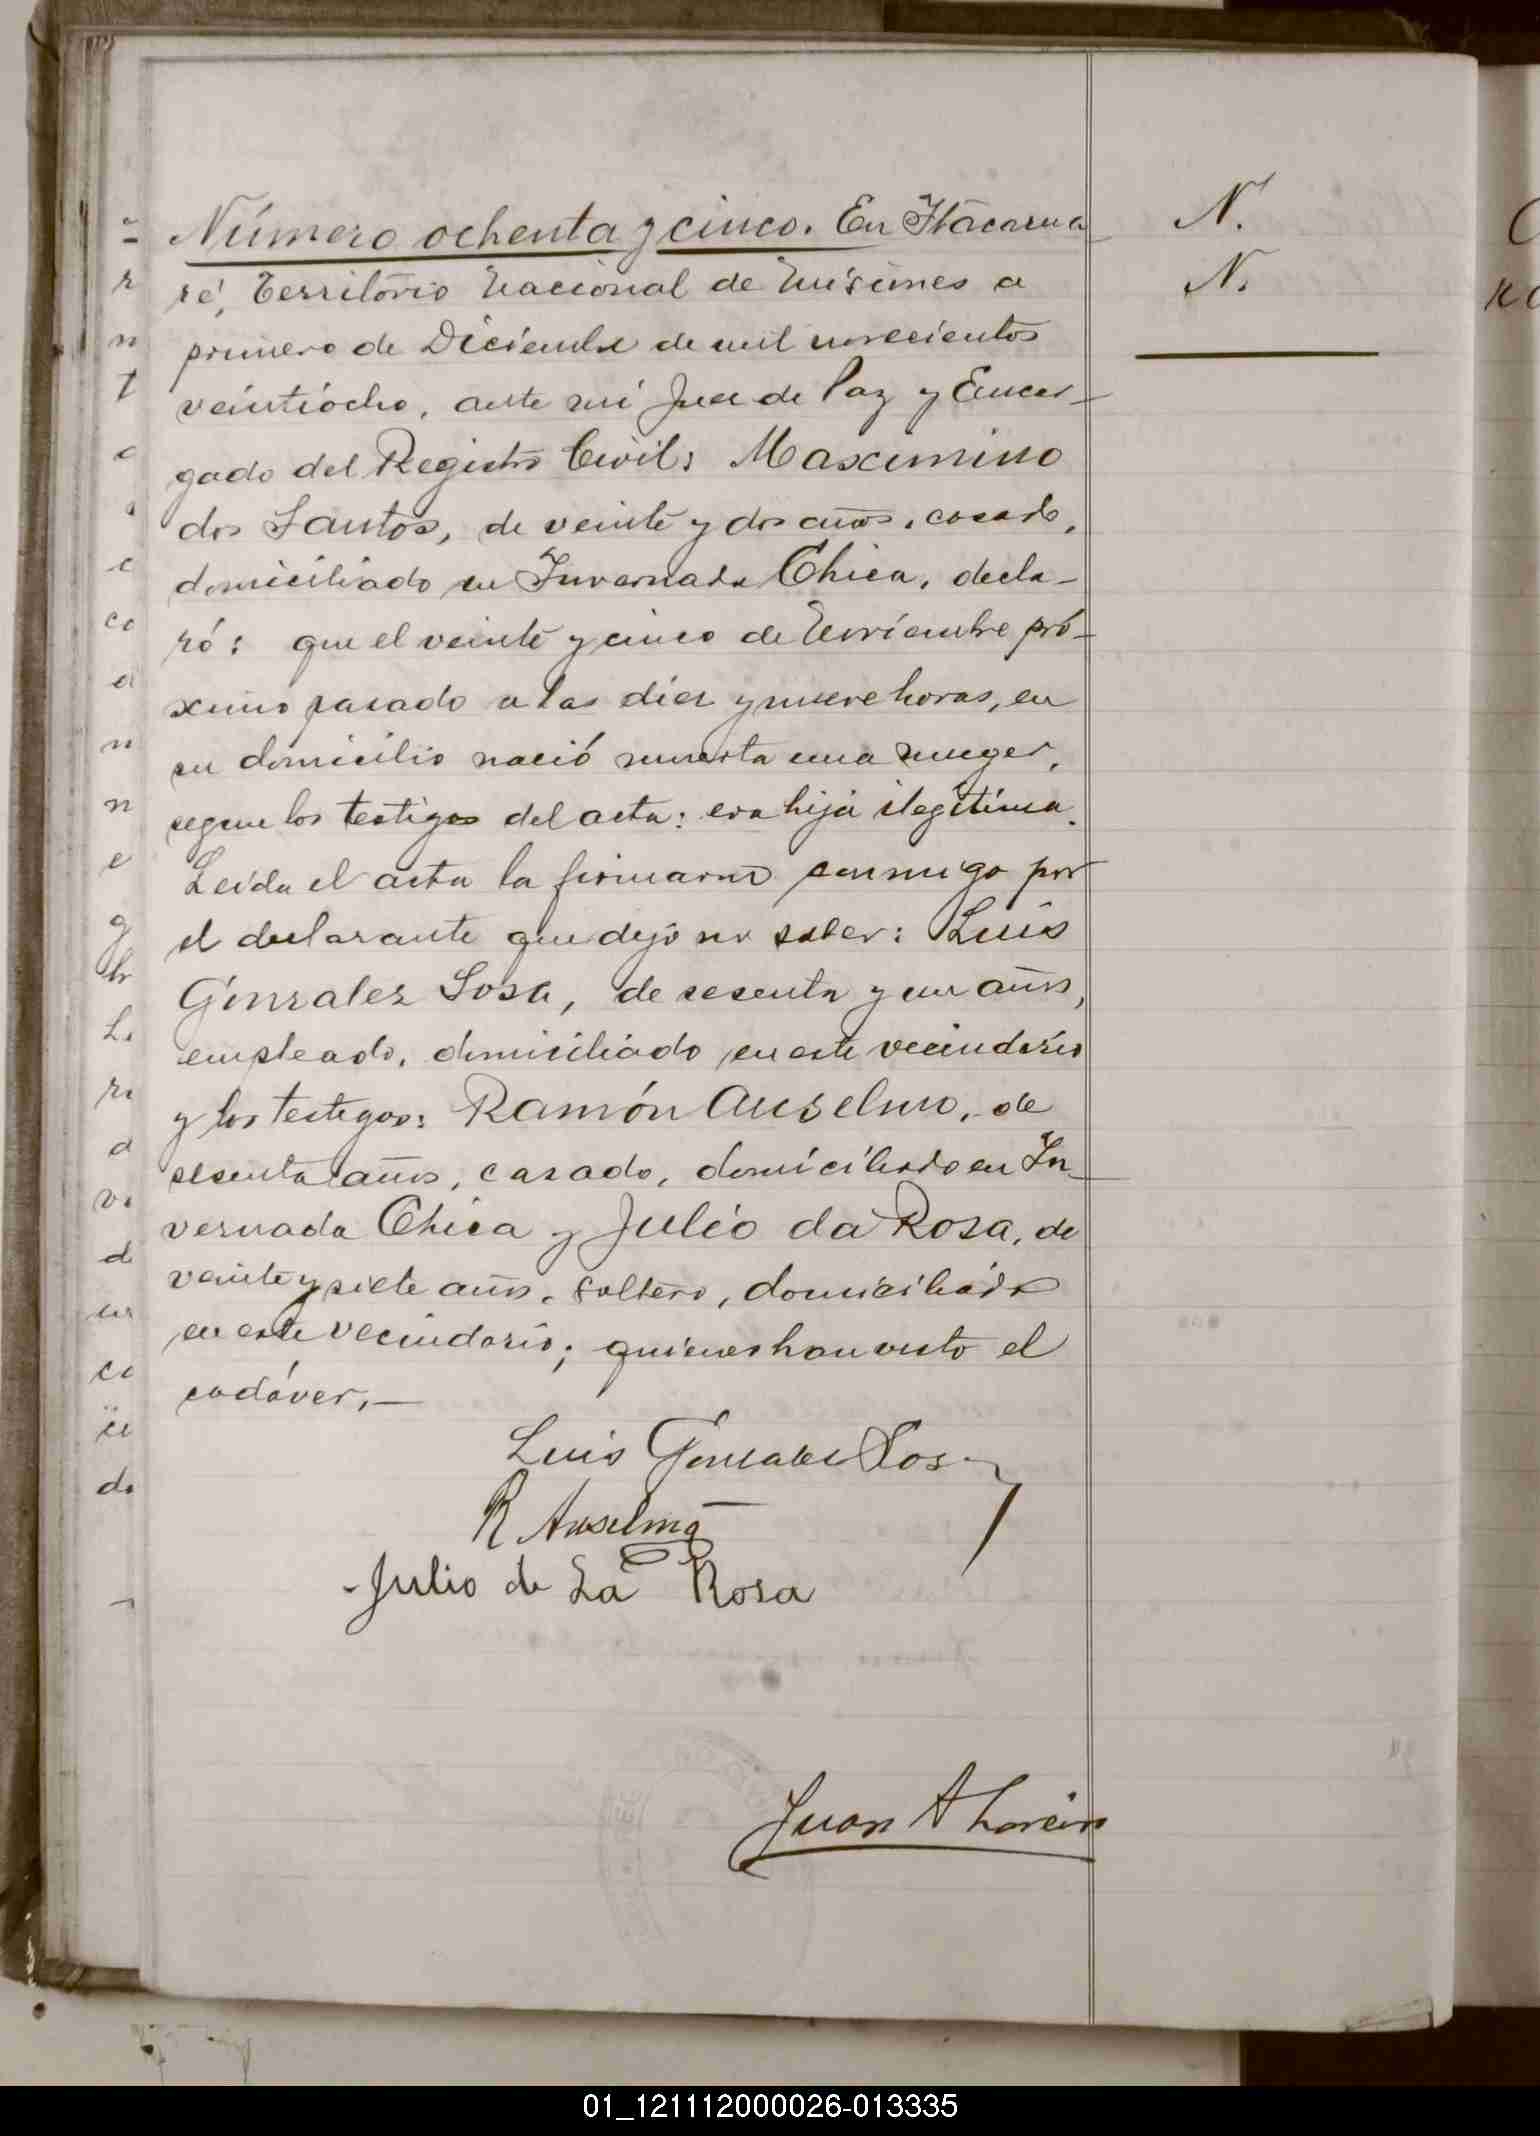 Número ochenta y cinco. En Itacarua
ré, Territorio Nacional de Misiones a
primero de Diciembre de mil novecientos
veintiocho, ante mi Juez de Paz y Encar-
gado del Registro Civil: Maximino
dos Santos, de veinte y dos años, casado,
domiciliado en Invernada Chica, decla-
ró: que el veinte y cinco de Noviembre pró-
ximo pasado a las diez y nueve horas, en
su domicilio nació muerta una muger,
segun los testigos del acta: era hija ilegítima.
Leida el acta la firmaron conmigo por
el declarante que dijo no saber: Luis
Gonzalez Sosa, de sesenta y un años,
empleado, domiciliado en este vecindario
y los testigos: Ramón Anselmo, de
sesenta años, casado, domiciliado en In-
vernada Chica y Julio da Rosa, de
veinte y siete años, soltero, domiciliado
en este vecindario; quienes han visto el
cadáver,—
Luis Gonzalez Sosa
R Anselmo
Julio de La Rosa
Juan A
N.
N.
01_121112000026-013335